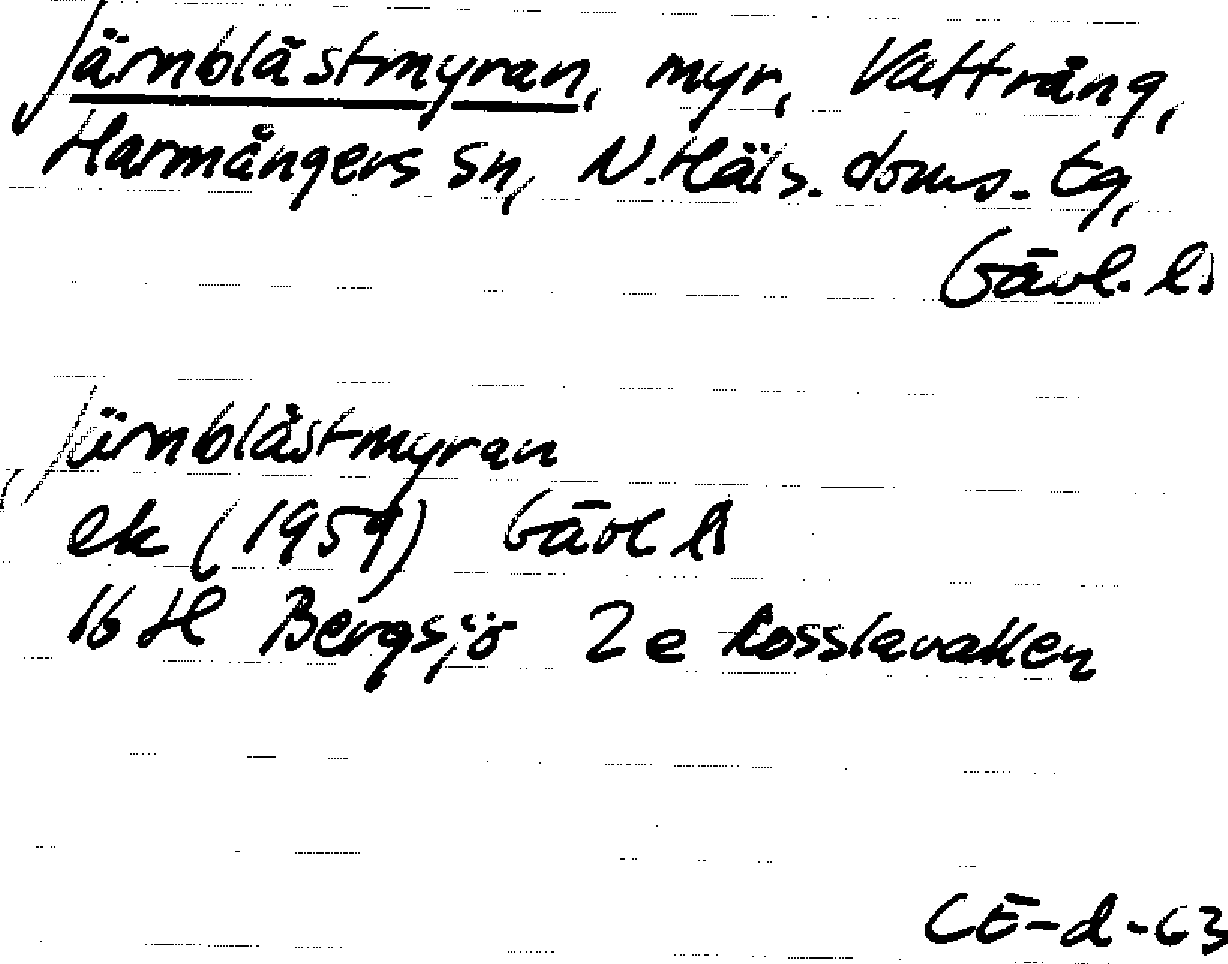 Järnblåstmyran, myr, Vattrång,
Harmångers sn, N. Häls. doms. tg,
Gävl. l.
Järnblåstmyran
ek (1959) Gävl l.
16 H Bergsjö 2e Rosslavallen
CE-d-63